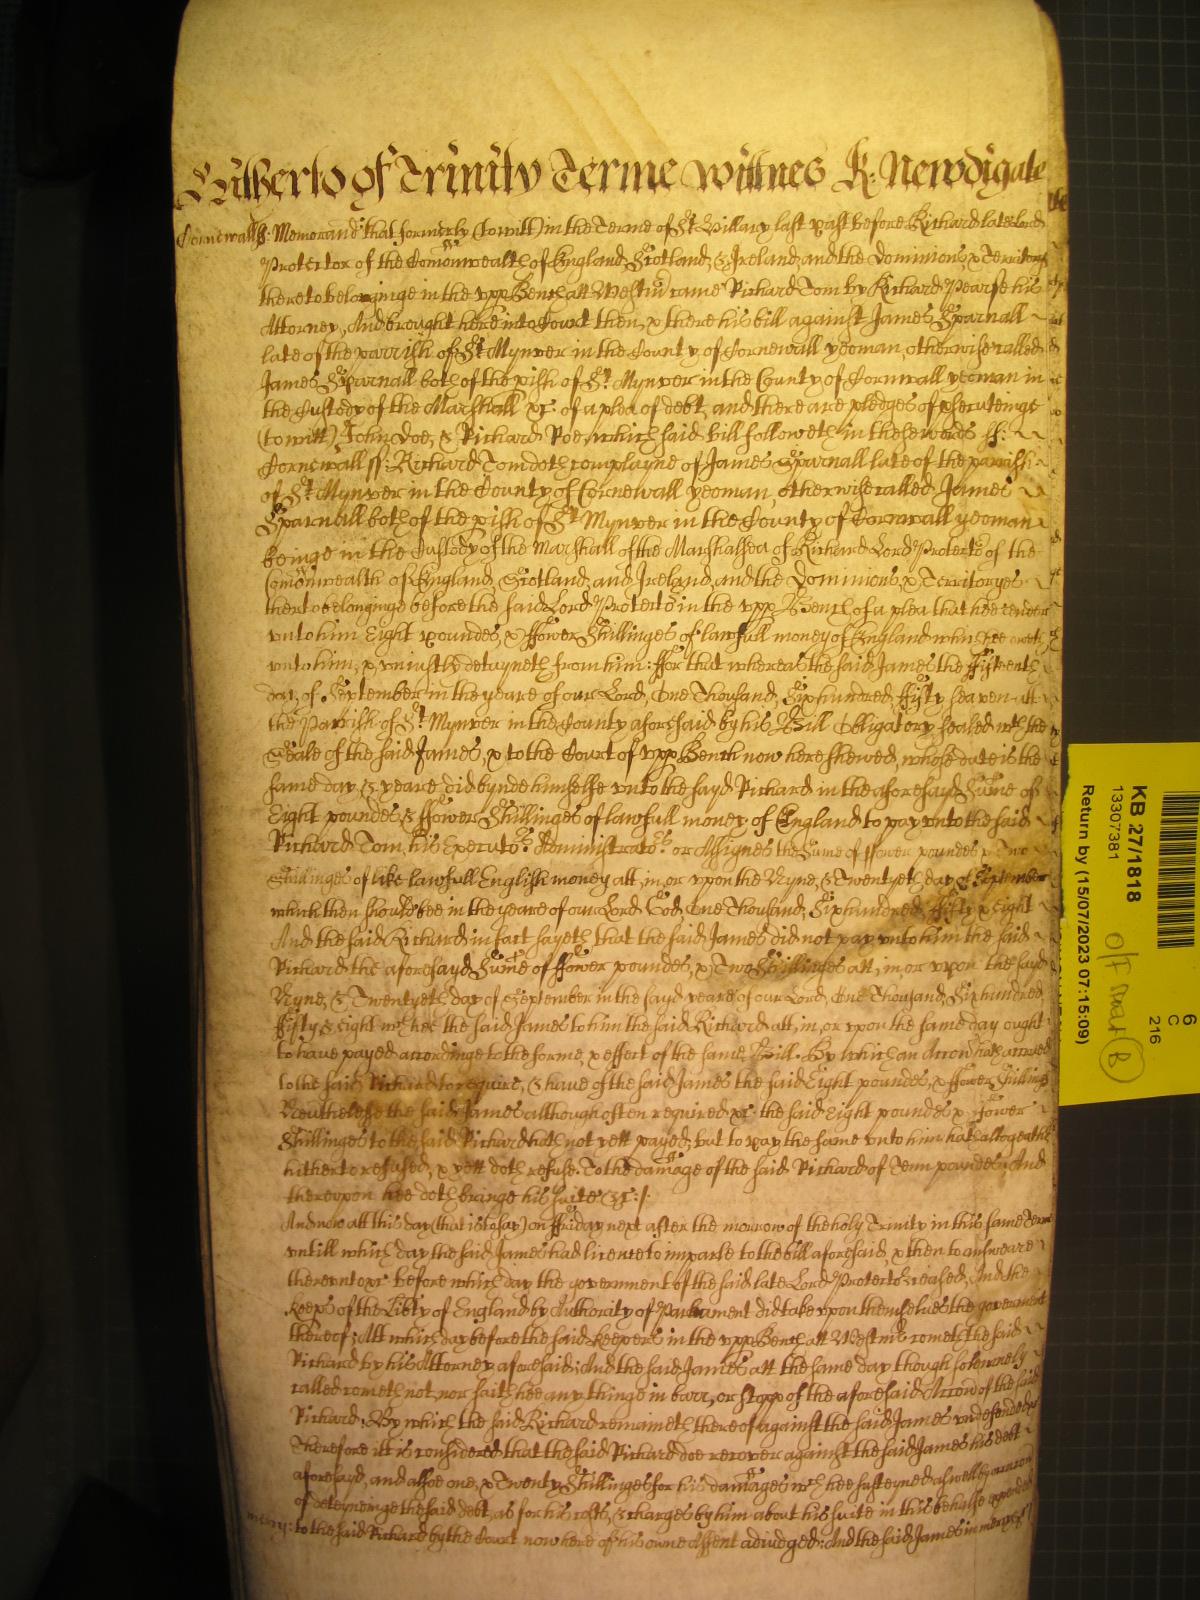 Hitherto of Trinity Terme Wittnes R: Newdigate
Cornewall ss: Memorand that formerly (to witt) in the Terme of St Hillary last past before Richard late Lord
Protector of the Comonwealth of England Scotland, & Ireland, and the Dominions, & Territoryes
thereto belonginge in the vpp Bench att Westm came Richard Tom by Richard Pearse his
Attorney, And brought here into Court then, & there his bill against James Sparnall
late of the parrish of St Mynver in the County of Cornewall yeoman, otherwise called
James Sparnall both of the pish of St Mynver in the County of Cornwall yeoman in
the Custody of the Marshall &c: of a plea of debt, and there are pledges of psecuteinge
(to witt) John Doe, & Richard Roe, which said bill followeth in these words ss:
Cornewall ss: Richard Tom doth complayne of James Sparnall late of the parrish
of St Mynver in the County of Cornewall yeoman, otherwise called James
Sparnall both of the pish of St Mynver in the County of Cornwall yeoman
beinge in the Custody of the Marshall of the Marshalsea of Richard Lord Protector of the
Comonwealth of England, Scotland, and Ireland, and the Dominions, & Territoryes
therto belonginge before the said Lord Protector in the vpp Bench of a plea that hee render
vnto him Eight poundes, & ffower Shillinges of lawfull money of England which hee oweth
vnto him, & vniustly detayneth from him: ffor that whereas the said James the ffifteenth
day of September in the yeare of our Lord, One Thousand, Sixhundred, ffifty seaven att
the Parrish of St Mynver in the County aforesaid by his Bill Obligatory sealed wth the
Seale of the said James, & to the Court of vpp Bench now here shewed, whose date is the
same day, & yeare did bynde himselfe vnto the sayd Richard in the aforesayd Sume of
Eight poundes, & ffower Shillinges of lawfull money of England to pay vnto the said
Richard Tom, his Executors Administrators or Assignes the Sume of ffower poundes & Two
Shillinges of like lawfull English money att, in, or vpon the Nyne, & Twentyeth day of September
which then should bee in the yeare of our Lord God, One Thousand, Sixhundred, ffifty & Eight
And the said Richard in fact sayeth that the said James did not pay vnto him the said
Richard the aforesayd Sume of ffower poundes, & Two Shillinges att, in, or vpon the sayd
Nyne, & Twentyeth day of September in the sayd yeare of our Lord, One Thousand, Sixhundred,
ffifty & Eight wch hee the said James to him the said Richard att, in, or vpon the same day ought
to have payed accordinge to the forme, & effect of the same Bill. By which an Accon hath accrued
to the said Richard to require, & have of the said James the said Eight poundes, & ffower Shillinges
Nevthelesse the said James although often required &c: the said Eight poundes & ffower
Shillinges to the said Richard hath not yett payed, but to pay the same vnto him hath altogeather
hitherto refused, & yett doth refuse. To the damage of the said Richard of Tenn poundes: And
therevpon hee doth bringe his suite &c:
And now att this day (that is to say) on ffriday next after the morrow of the holy Trinity in this same Terme
vntill which day the said James had licence to imparle to the bill aforesaid & then to answeare
therevnto &c: before which day the government of the said late Lord Protector ceased, And the
Keeps of the Libty of England by Authority of Parliament did take vpon themselves the government
thereof: Att which day before the said Keepers in the vpp Bench att Westmr cometh the said
Richard by his Attorney aforesaid: And the said James att the same day though solemnely
called cometh not nor saith hee any thinge in barr, or stopp of the aforesaid Accon of the said
Richard: By which the said Richard remaineth thereof against the said James vndefended &c
Therefore itt is considered that the said Richard doe recover against the said James his debt
aforesayd, and alsoe one, & Twenty Shillinges for his damages wch hee susteyned aswell by occacon
of deteyneinge the said debt, as for his costs, & charges by him about his suite in this behalfe expended
mercy: to the said Richard by the Court now here of his owne Assent adiudged: And the said James in mercy &c
KB 27/1818
13307381
Return by (15/07/2023 07:15:09)
6
C
216
B